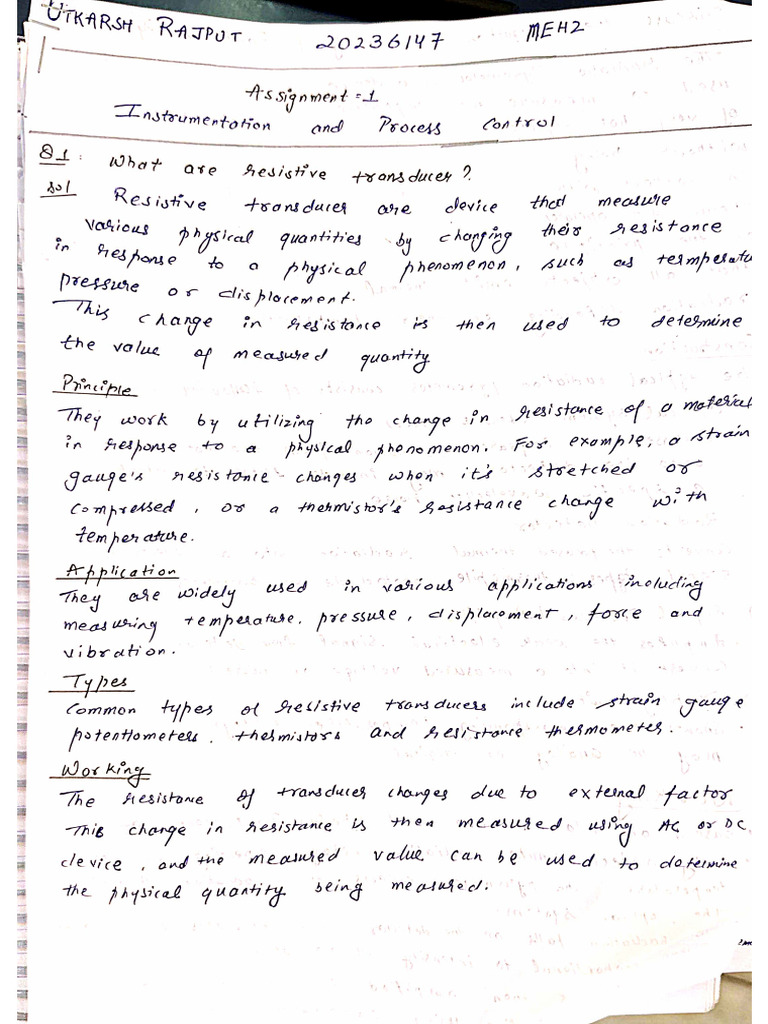 UTKARSH RAJPUT 20236147 MEH2
Assignment = 1
Instrumentation and Process Control
Q1: What are resistive transducer?
Sol Resistive transducer are device that measure
various physical quantities by changing their resistance
in response to a physical phenomenon, such as termperatu
pressure or displacement.
This change in resistance is then used to determine
the value of measured quantity
Principle
They work by utilizing the change in resistance of a material
in response to a physical phenomenon. For example, a strain
gauge's resistance changes when it's stretched or
compressed, or a thermistor's resistance change with
temperature.
Application
They are widely used in various applications including
measuring temperature, pressure, displacement, force and
vibration.
Types
Common types of resistive transducers include strain gauge
potentiometers, thermistors and resistance thermometer.
Working
The resistance of transducer changes due to external factor
This change in resistance is then measured using AC or DC
device, and the measured value can be used to determine
the physical quantity being measured.